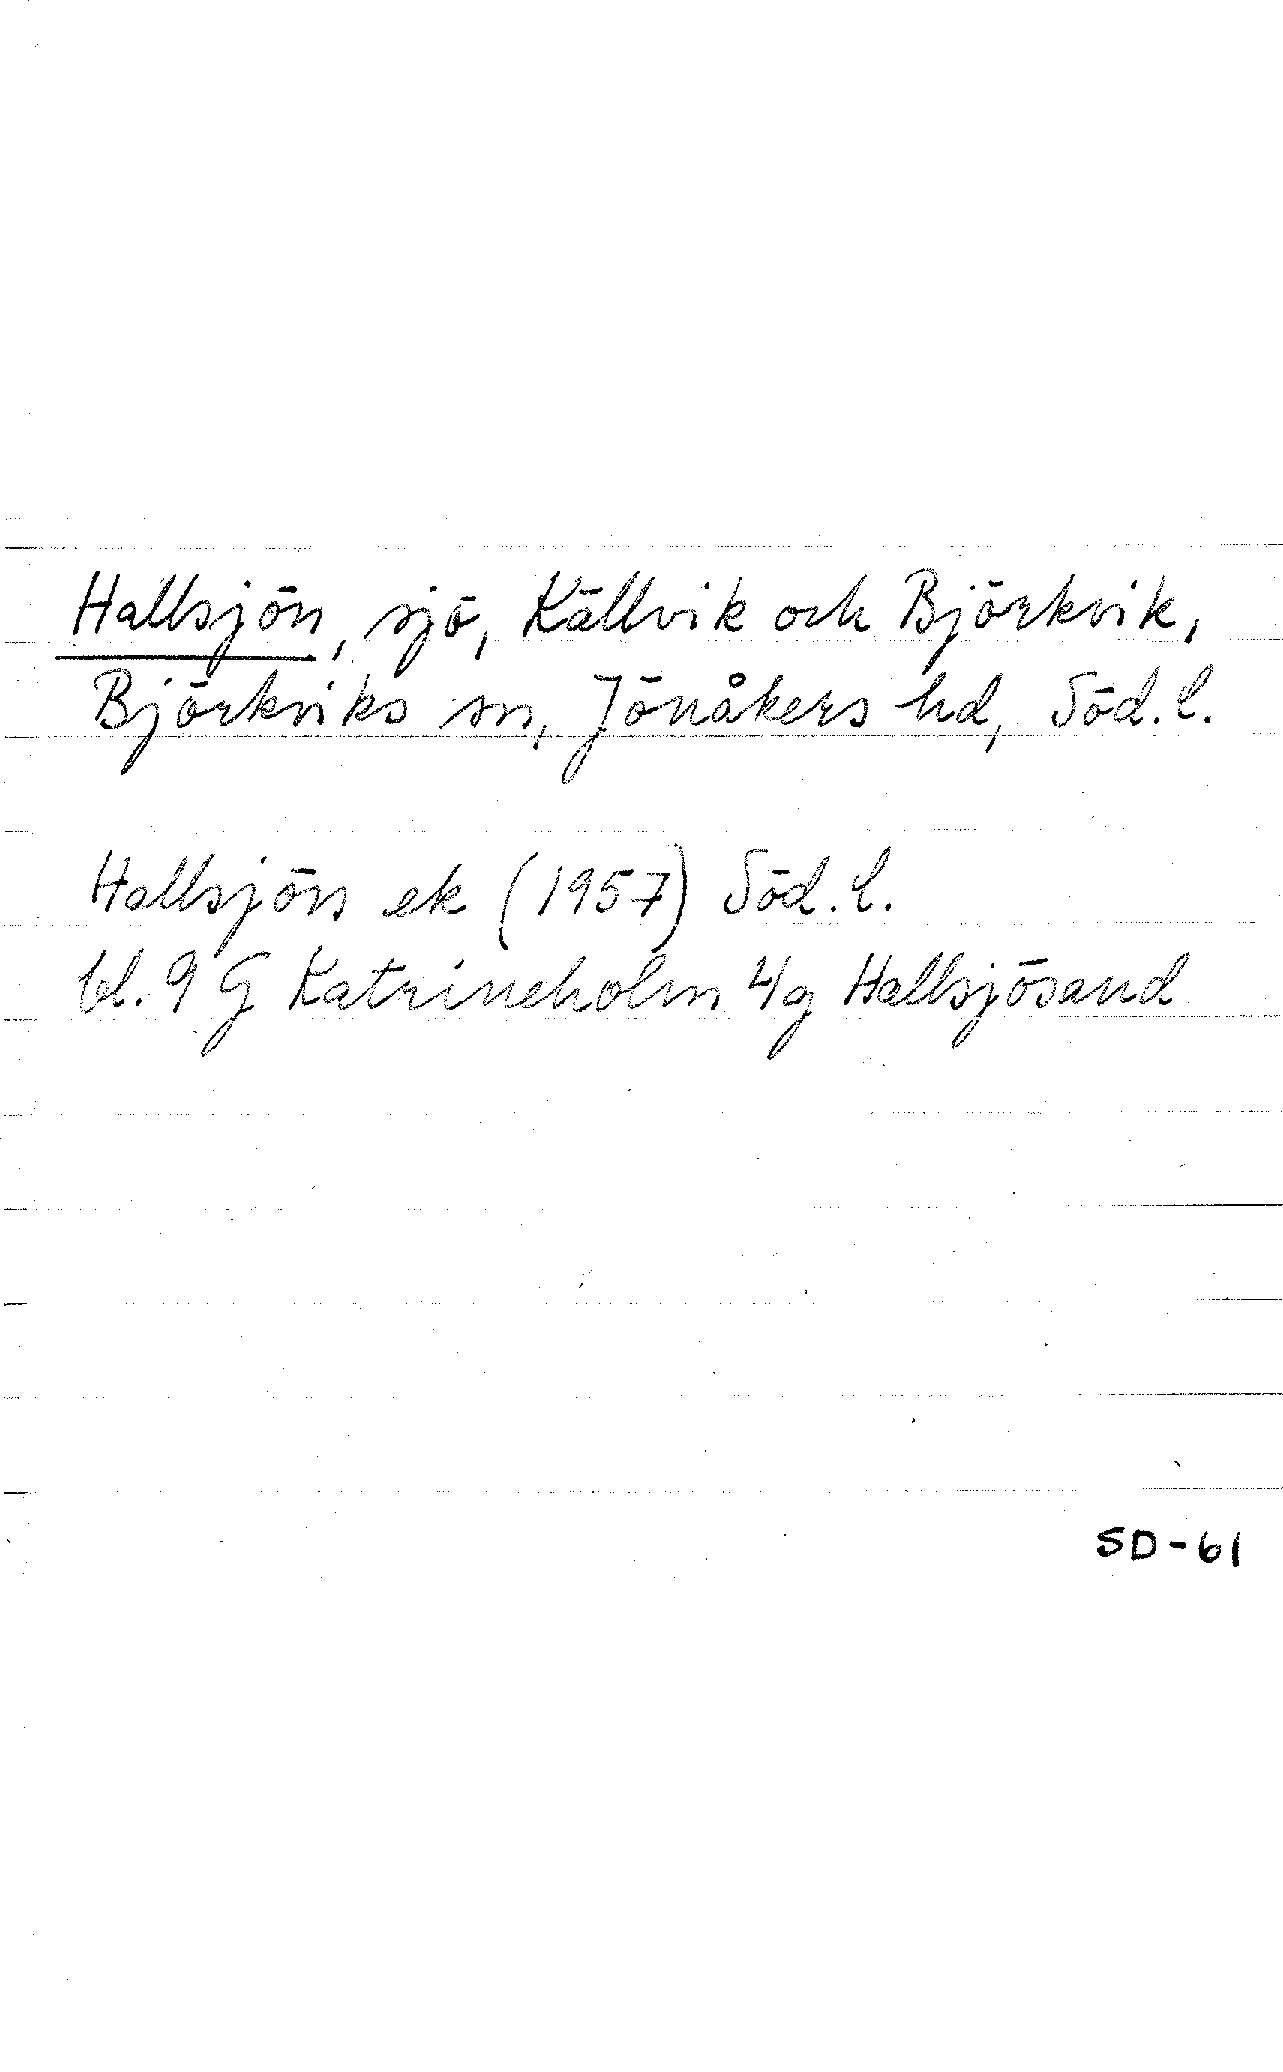 Hallsjön, sjö, Källvik och Björkvik,
Björkviks sn, Jönåkers hd, Söd. l.
Hallsjön ek (1957) Söd. l.
bl. 9 G Katrineholm 4g Hallsjösand
SD-61